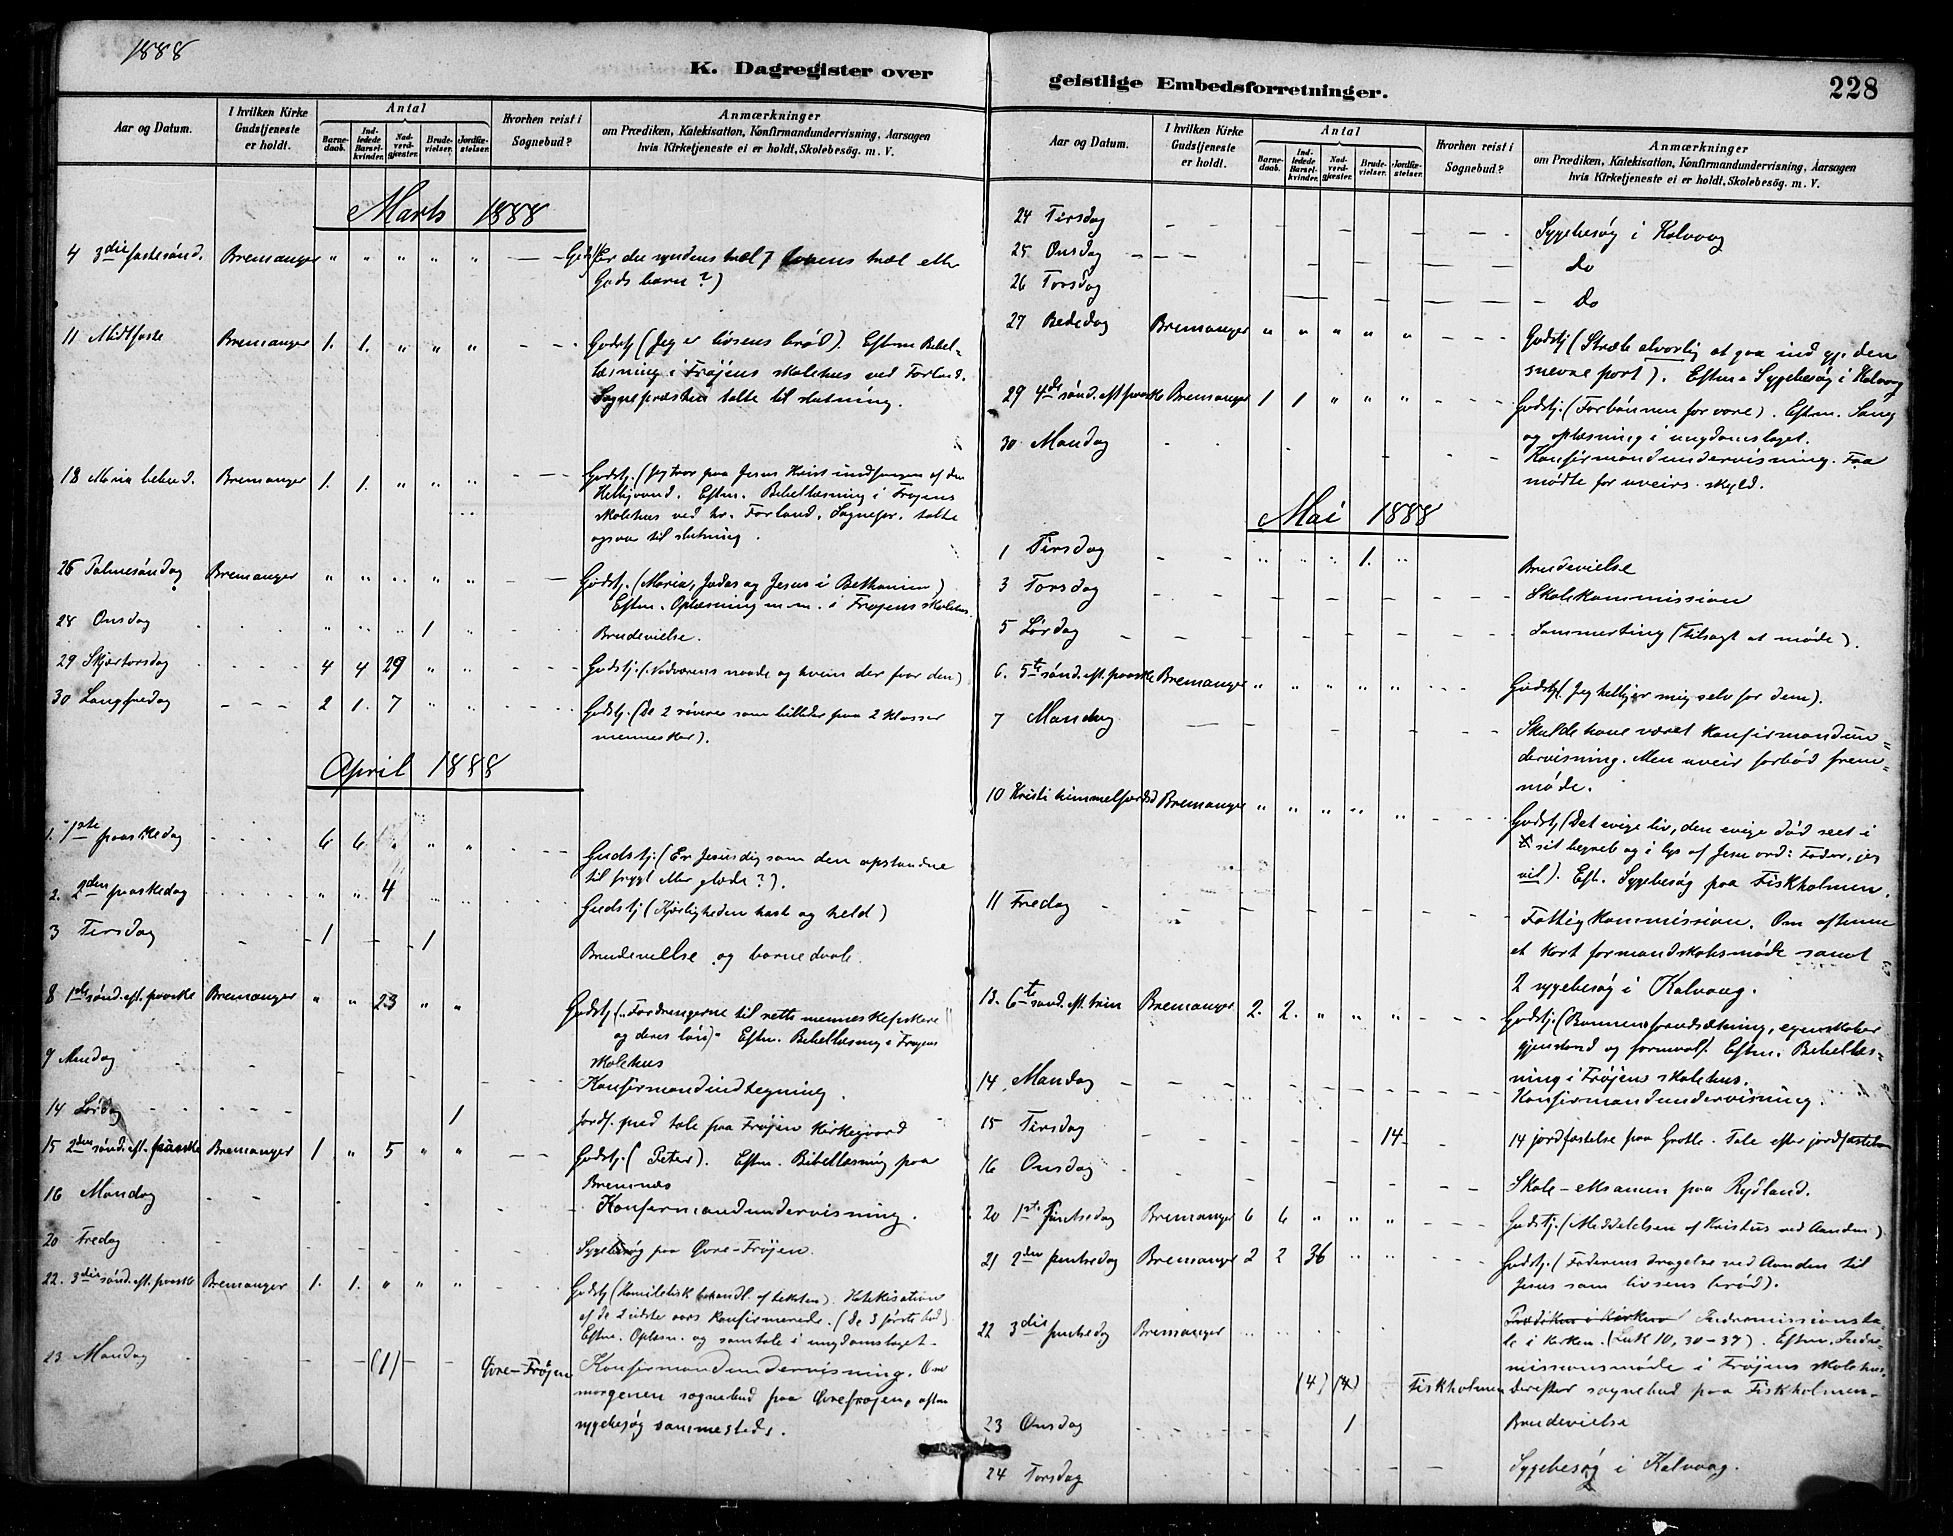 1888
K. Dagregister over
Aar og Datum.
I hvilken Kirke Gudstjeneste er holdt.
Antal
Barnedaab.
Indledede Barselkvinder.
Nadverdgjæster.
Brudevielser.
Jordfæstelser.
Hvorhen reist i Sognebud?
Anmærkninger
om Prædiken, Katekisation, Konfirmandundervisning, Aarsagen
hvis Kirketjeneste ei er holdt, Skolebesøg. m. V.
Marts 1888
4 3die fastesønd. Bremanger " " " " " — — Gdstj (Er du syndens træl, lovens træl eller
Guds barn?)
11 Midtfaste Bremanger 1. 1. " " " - - - Gudstj (Jeg er livsens brød). Eftm Bibel=
læsning i Frøjens skolehus ved Forland.
Sognepræsten talte til slutning.
18 Maria bebud. Bremanger 1. 1. " " " - — - Gudstj. (Jeg tror paa Jesus Krist undfangen af den
Helligaand. Eftm. Bibellæsning i Frøjens
skolehus ved hr. Forland. Sognepr. talte
ogsaa til slutning.
25 Palmesøndag Bremanger " " " " " - — Gudstj. (Maria, Judas og Jesus i Bethanien)
Eftm. Oplæsning m.m. i Frøjens skolehus.
28 Onsdag - - - " " " 1 " - - - Brudevielse.
29 Skjærtorsdag - - - - 4 4 29 " " - - - Gudstj. (Nadverens naade og hvem der faar den)
30 Langfredag - - - 2 1. 7 " " - - - Gudstj. (De 2 røvere som billeder paa 2 klasser
mennesker).
April 1888
1. 1ste paaskedag - - - - 6 6 " " " - - - Gudstj. (Er Jesus dig som den opstandne
til frygt eller glæde?).
2. 2den paaskedag - - - " " 4 Gudstj (Kjærligheden hast og held)
3 Tirsdag - - 1 - - 1 Brudevielse og barnedaab.
8 1ste sønd. eft. paaske Bremanger " " 23 " " Gudstj. ("Fordringerne til rette menneskefiskere
og deres løn)" Eftm. Bibellæsning i Frøjens
skolehus
9 Mandag - - - Konfirmandindtegning.
14 Lørdag - - - - - 1 Jordf. med tale paa Frøjen kirkegaard
15 2den sønd. eft. paaske Bremanger 1 " 5 " " - - Gudstj. (Peter). Eftm. Bibellæsning paa
Bremnæs
16 Mandag - - - Konfirmandundervisning.
20 Fredag - - - Sygebesøg paa Øvre-Frøjen.
22. 3die sønd. eft. paaske Bremanger 1. 1. " " " - - Gudstj (Homiletisk behandl. af teksten). Katekisation
af de 2 sidste aars konfirmerede. (De 3 første bud).
Eftm. Oplæsn. og samtale i ungdomslaget.
23 Mandag - - - (1) - - Øvre-Frøjen Konfirmandundervisning. Om
morgenen sognebud paa Øvrefrøjen, aften
sygebesøg sammesteds.
geistlige Embedsforretninger.
228
Aar og Datum.
I hvilken Kirke Gudstjeneste er holdt.
Antal
Barnedaab.
Indledede Barselkvinder.
Nadverdgjæster.
Brudevielser.
Jordfæstelser.
Hvorhen reist i Sognebud?
Anmærkninger
om Prædiken, Katekisation, Konfirmandundervisning, Aarsagen
hvis Kirketjeneste ei er holdt, Skolebesøg. m. V.
24 Tirsdag - - - Sygebesøg i Kalvaag
25 Onsdag - - - do
26 Torsdag - - - Do
27 Bededag Bremanger " " " " " - - - Gudstj (Stræb alvorlig at gaa ind gj. den
snevre port). Eftm Sygebesøg i Kalvaag
29 4de sønd. eft paaske Bremanger 1 1 " " " - - - Gudstj. (Forbønnen for vore). Eftm. Sang
og oplæsning i ungdomslaget.
30 Mandag - - - Konfirmandundervisning. Faa
mødte for uveirs skyld.
Mai 1888
1 Tirsdag - - " " " 1. " Brudevielse
3 Torsdag - - - Skolekommission
5 Lørdag - - - Sommerting (Tilsagt at møde).
6. 5te sønd. eft. paaske Bremanger " " " " " - - - Gudstj. (Jeg helliger mig selv for dem).
7 Mandag - - - Skulde have været konfirmandun=
dervisning. Men uveir forbød frem=
møde.
10 Kristi himmelfartsd Bremanger " " " " " - - - Gudstj (Det evige liv, den evige død seet i
sit begreb og i lys af Jesu ord: Fader, jeg
vil). Eft. Sygebesøg paa Fiskholmen.
11 Fredag - - - Fattigkommission. Om aftenen
et kort formandskabsmøde samt
2 sygebesøg i Kalvaag.
13. 6te sønd. eft. trin Bremanger 2. 2. " " " - - - Gudstj. (Bønnens forudsætning, egenskaber
gjenstand og formaal). Eftm. Bibellæs=
ning i Frøjens skolehus.
14. Mandag - - - Konfirmandundervisning.
15 Tirsdag - - - 14 - - 14 jordfæstelse paa Grotle. Tale efter jordfæstelsen
16 Onsdag - - - Skole-eksamen paa Rylland.
20 1ste pintsedag Bremanger 6 6 " " " - - - Gudstj. (Meddelelsen af Kristus ved Aanden)
21 2den pintsedag Bremanger 2 2 36 " " - - Gudstj. (Faderens dragelse ved Aanden til
Jesus som livsens brød).
22 3die pintsedag Bremanger Prædiken i kirken Indremissionsta=
le i kirken. (Luk 10, 30-37). Eftm. Indre=
missionsmøde i Frøjens skolehus,
(4) (4) Fiskholmen derefter sognebud paa Fiskholmen-
23 Onsdag - - - 1 Brudevielse
24 Torsdag - - - Sygebesøg i Kalvaag.